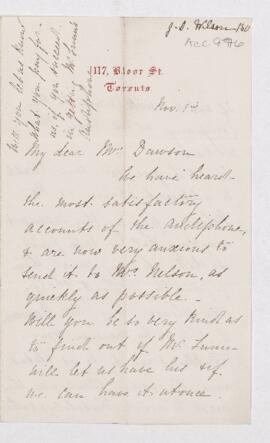 J. S. Wilson
Acc 976
117, Bloor St.
Toronto.
Will you let us know
what you pay for
us, if you succeed
in getting Mr
Audiphone
Nov. 1st
My dear Mr Dawson
We have heard
the most satisfactory
accounts of the audiphone,
& are now very anxious to
send it to Mrs Nelson, as
quickly as possible.
Will you be so very kind as
to find out if Mr
will let us have his & if
we can have it at once.